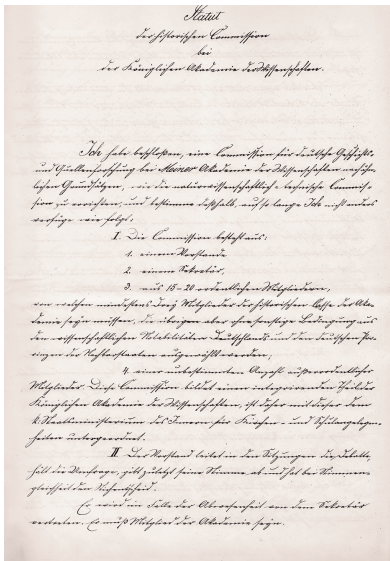 Statut
der historischen Commission
bei
der Königlichen Akademie der Wissenschaften.
Ich habe beschloßen, eine Commission für deutsche Geschichts-
und Quellenforschung bei Meiner Akademie der Wissenschaften nach ähn-
lichen Grundsätzen, wie die naturwissenschaftlich-technische Commis-
sion zu errichten, und bestimme deßhalb, auf so lange Ich nicht anders
verfüge wie folgt:
I. Die Commission besteht aus:
1. einem Vorstande
2. einem Sekretär,
3. aus 15-20 ordentlichen Mitgliedern,
von welchen mindestens drey Mitglieder der historischen Classe der Aka-
demie seyn müssen, die übrigen aber ohne sonstige Bedingung aus
den wissenschaftlichen Notabilitäten Deutschlands und den deutschen Pro-
vinzen der Nachbarstaaten ausgewählt werden;
4. einer unbestimmten Anzahl außerordentlicher
Mitglieder. Diese Commission bildet einen integrirenden Theil der
Königlichen Akademie der Wissenschaften, ist daher mit dieser dem
k. Staatsministerium des Innern für Kirchen- und Schulangelegen-
heiten untergeordnet.
II. Der Vorstand leitet in den Sitzungen die Debatte,
hält die Umfrage, gibt zuletzt seine Stimme ab und hat bei Stimmen-
gleichheit den Stichentscheid.
Er wird im Falle der Abwesenheit von dem Sekretär
vertreten. Er muß Mitglied der Akademie seyn.